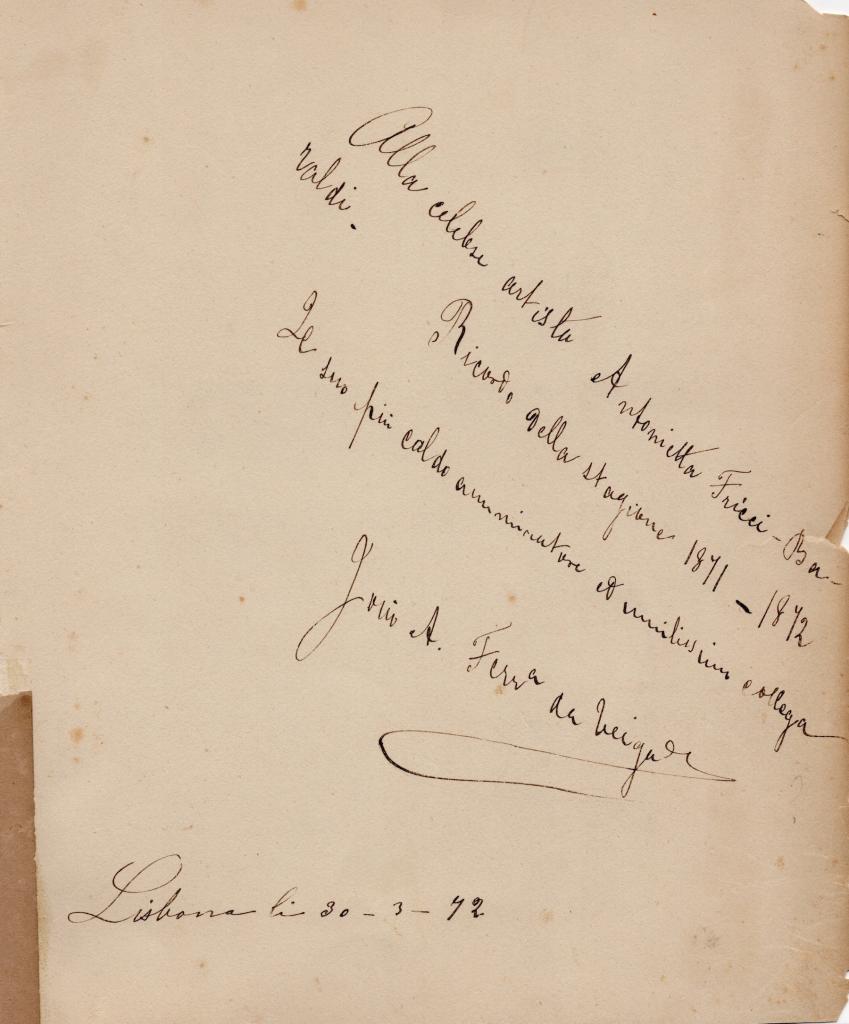 Alla celebre artista Antonietta Fricci-Ba-
raldi.
Ricordo della stagione 1871 - 1872
Il suo più caldo ammiratore ed umilissimo collega
João A. Ferra da Veiga
Lisbona li 30 - 3 - 72